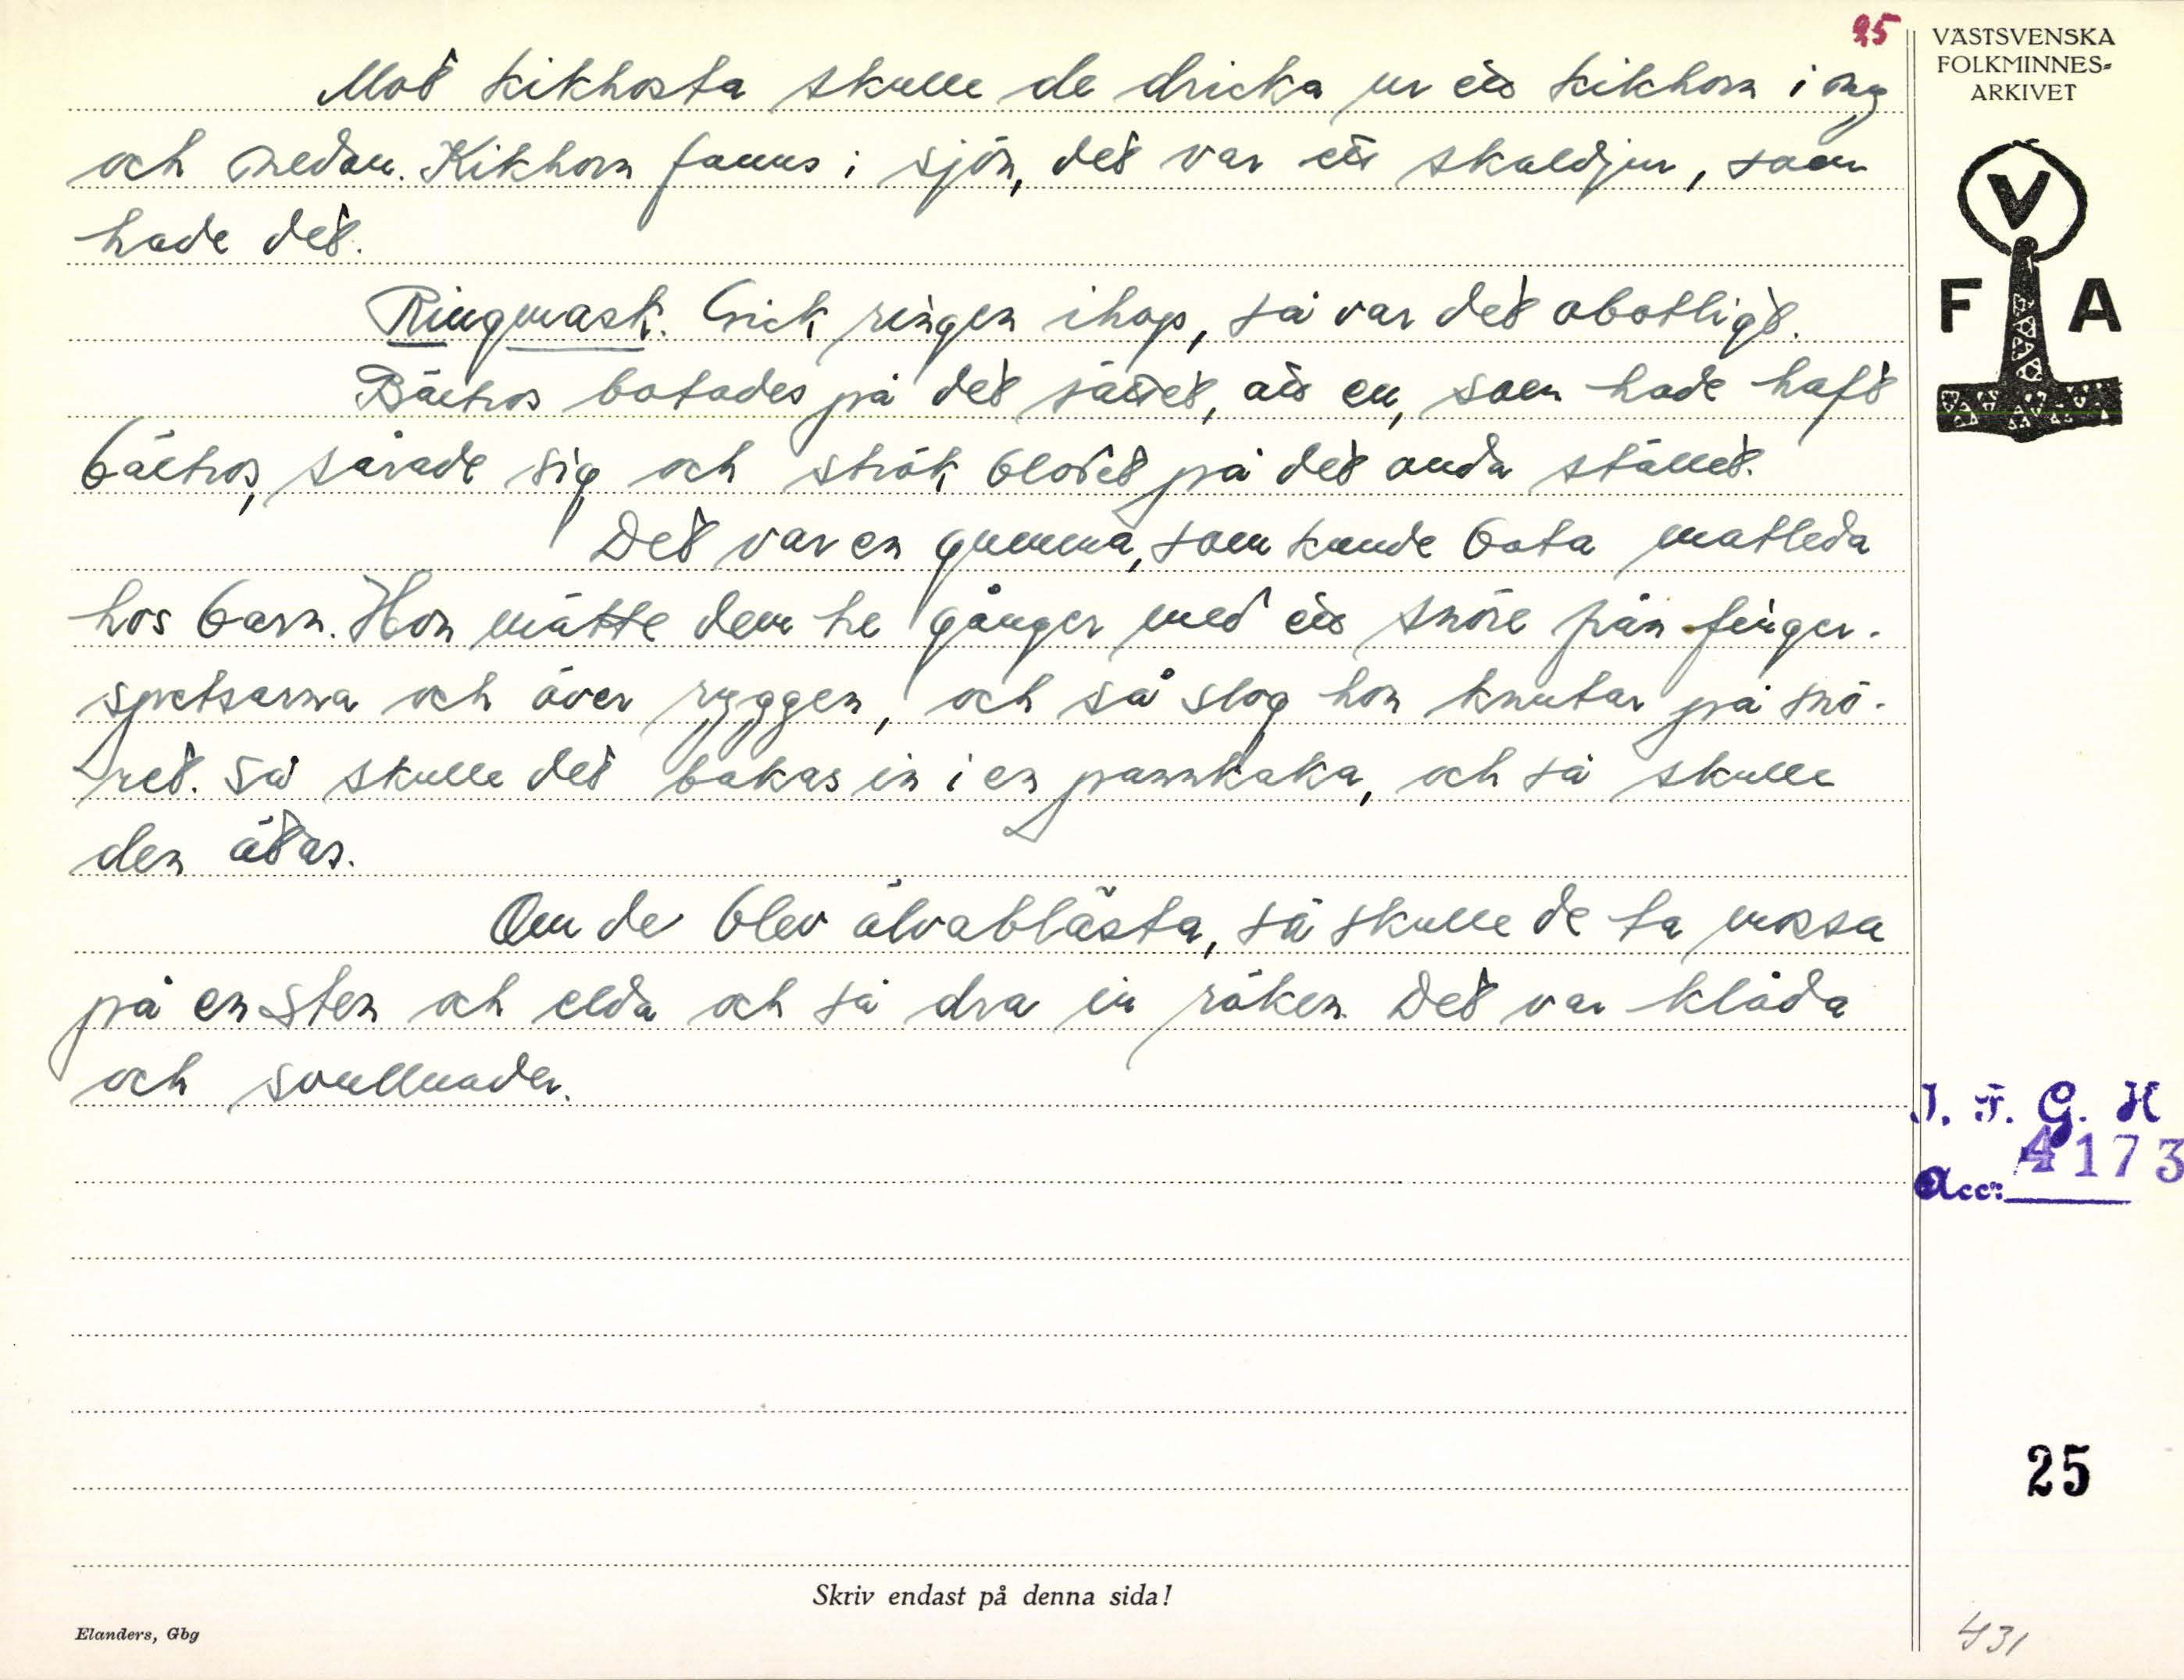 25
VÄSTSVENSKA
FOLKMINNES-
ARKIVET
V
F A
Mot kikhosta skulle de dricka ur ett kikhorn i ny
och nedan. Kikhorn fanns i sjön, det var ett skaldjur, som
hade det.
Ringmask. Gick ringen ihop, så var det obotligt.
Bältros botades på det sättet, att en, som hade haft
bältros, sårade sig och strök blodet på det onda stället.
Det var en gumma, som kunde bota matleda
hos barn. Hon mätte dem tre gånger med ett snöre från finger-
spetsarna och över ryggen, och så slog hon knutar på snö-
ret. Så skulle det bakas in i en pannkaka, och så skulle
den ätas.
Om de blev älvablästa, så skulle de ta mossa
på en sten och elda och så dra in röken. Det var klåda
och svullnader.
I. F. G. H
4173
Acc:
25
Skriv endast på denna sida!
Elanders, Gbg
431